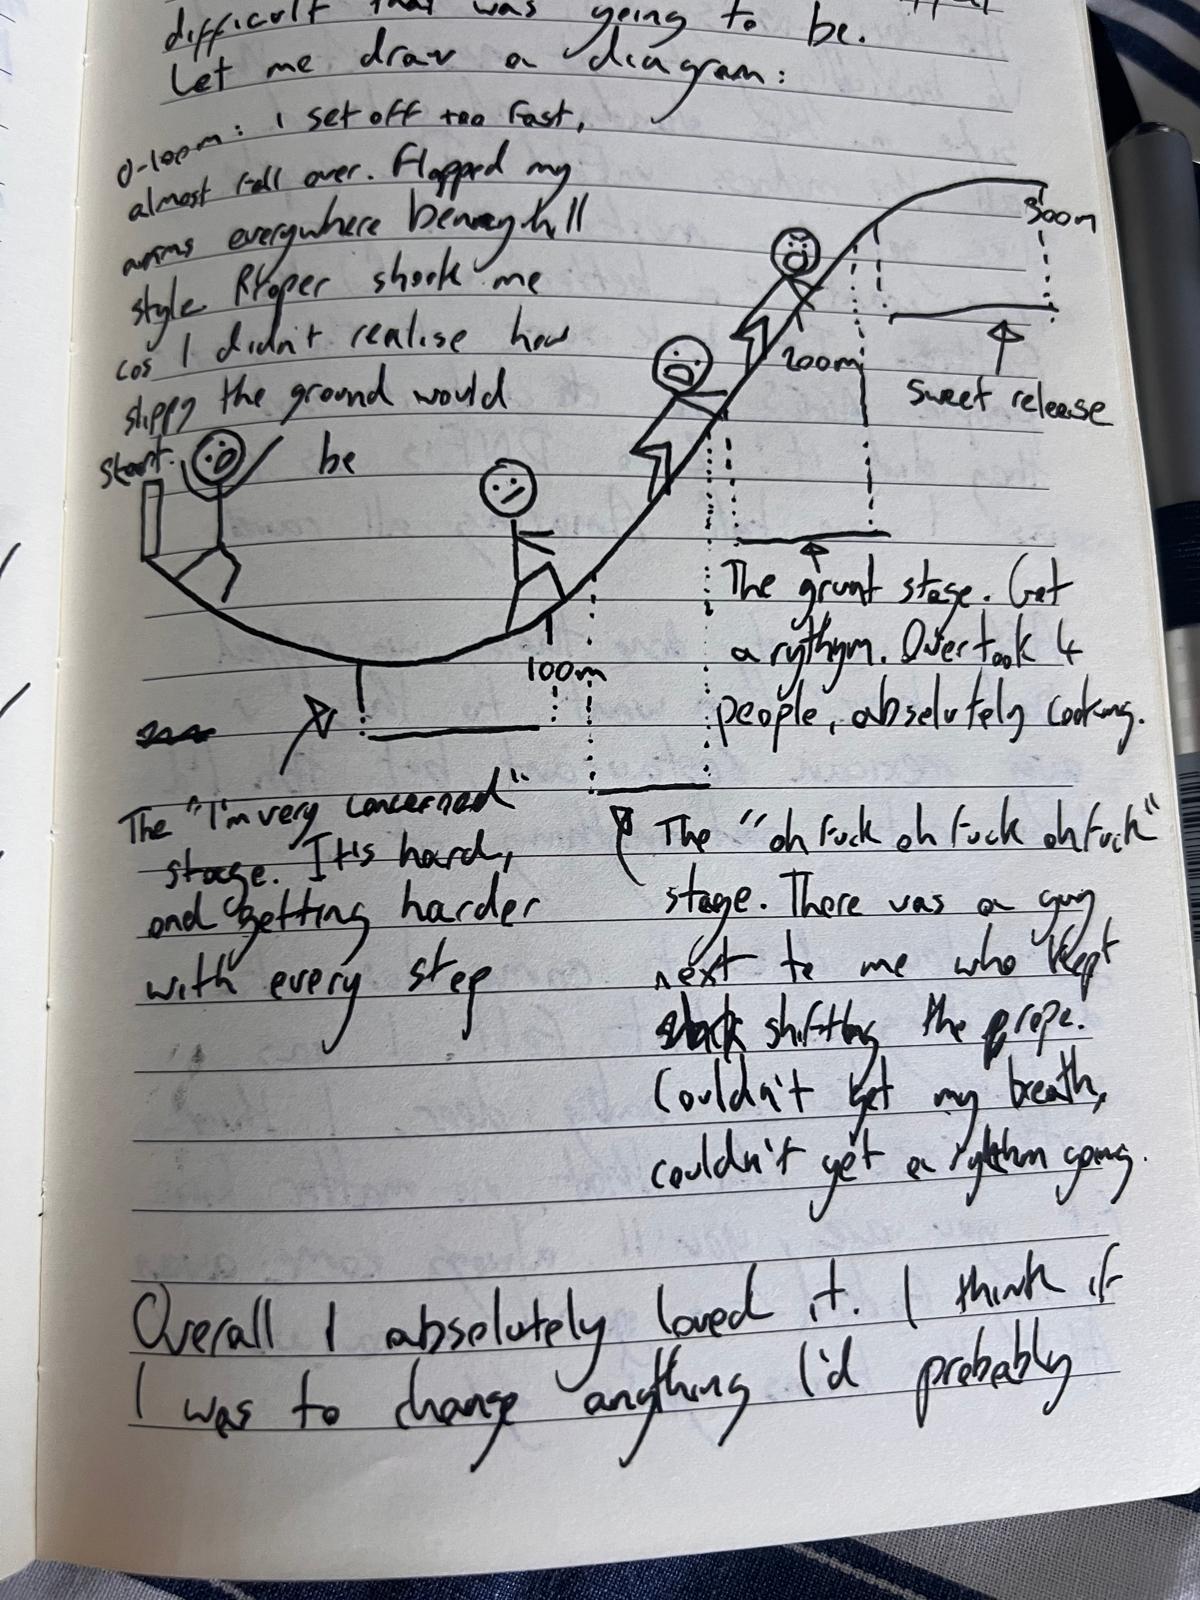 difficult that was going to be.
Let me draw a diagram:
0-100m: I set off too fast,
almost fell over. Flapped my
arms everywhere bennyhill
style. Proper shook me
cos I didn't realise how
slippy the ground would
be
start.
300m
200m
sweet release
100m
The grunt stage. Get
a rythym. Overtook 4
people, absolutely cooking.
The "I'm very concerned"
stage. It's hard,
and getting harder
with every step
The "oh fuck oh fuck oh fuck"
stage. There was a guy
next to me who kept
shifting the rope.
Couldn't get my breath,
couldn't get a rythm going.
Overall I absolutely loved it. I think if
I was to change anything I'd probably